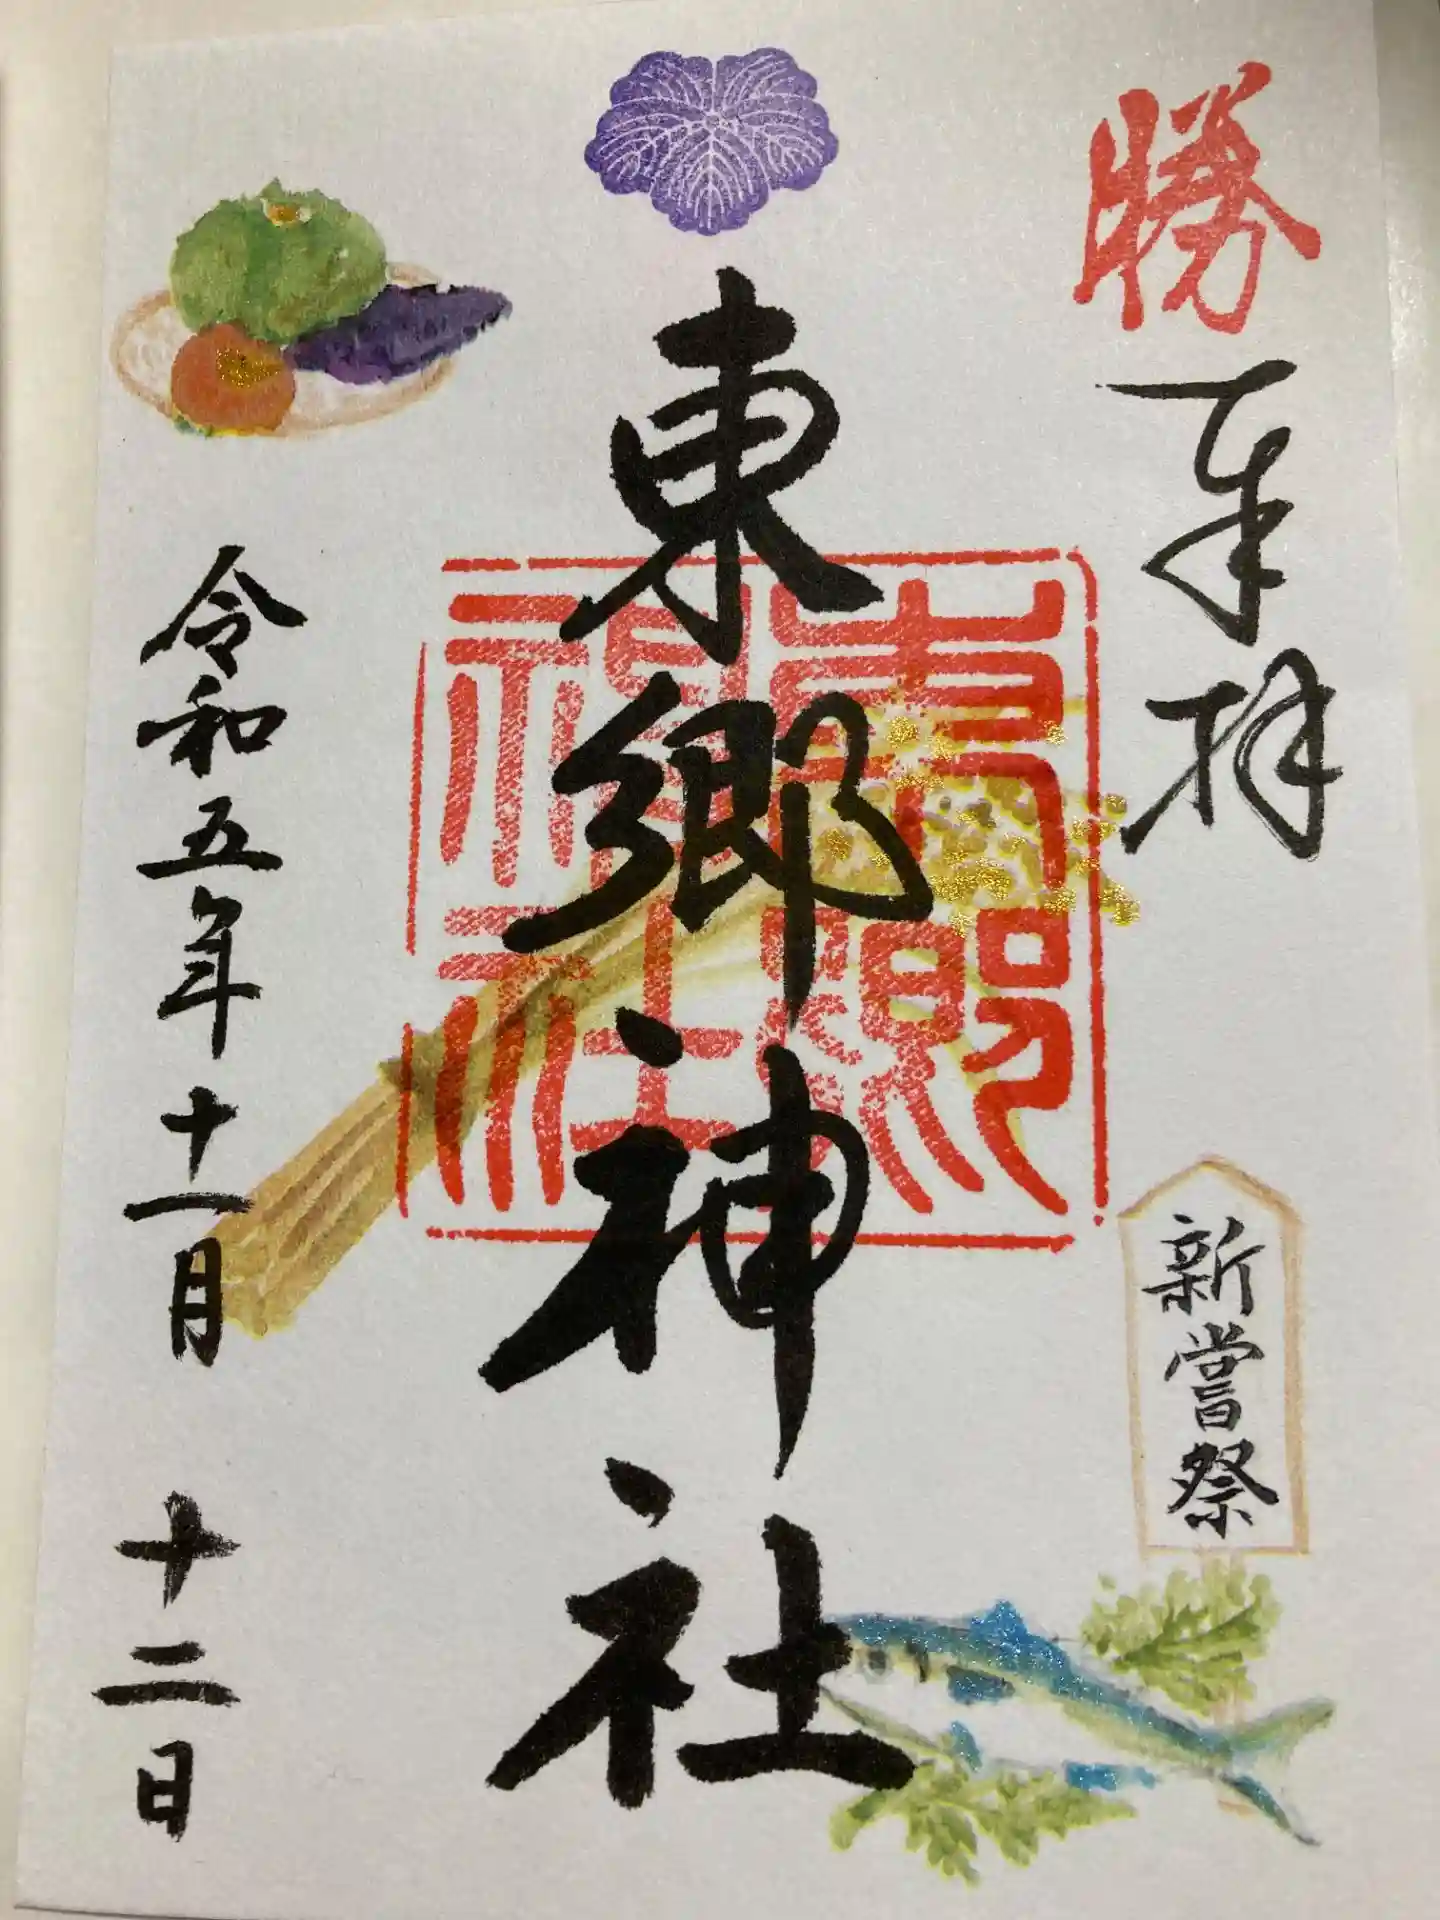 勝
奉拝
新嘗祭
東郷神社
東郷神社
令和五年十一月十二日